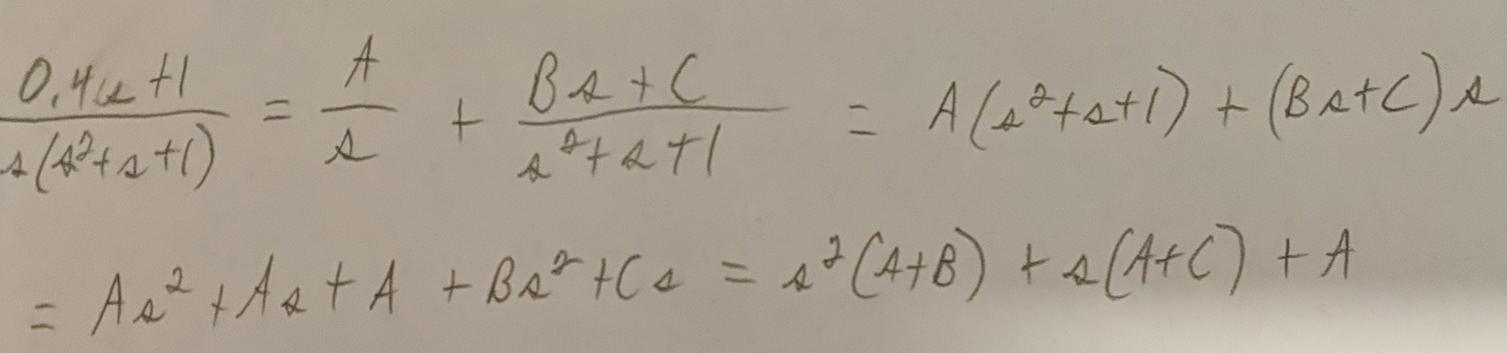 (0.4s+1)/(s(s²+s+1)) = A/s + (Bs+C)/(s²+s+1) = A(s²+s+1) + (Bs+C)s
= As² + As + A + Bs² + Cs = s²(A+B) + s(A+C) + A